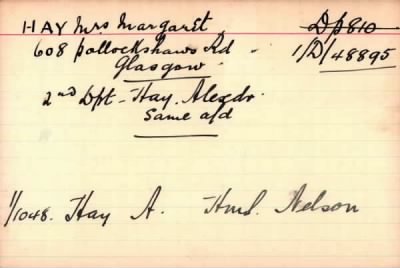 HAY Mrs Margaret D/p810
608 pollockshaws Rd " 1/D/48895
Glasgow
2nd Dpt - Hay. Alexdr.
Same a/d
1/1048. Hay A. Hms. Nelson